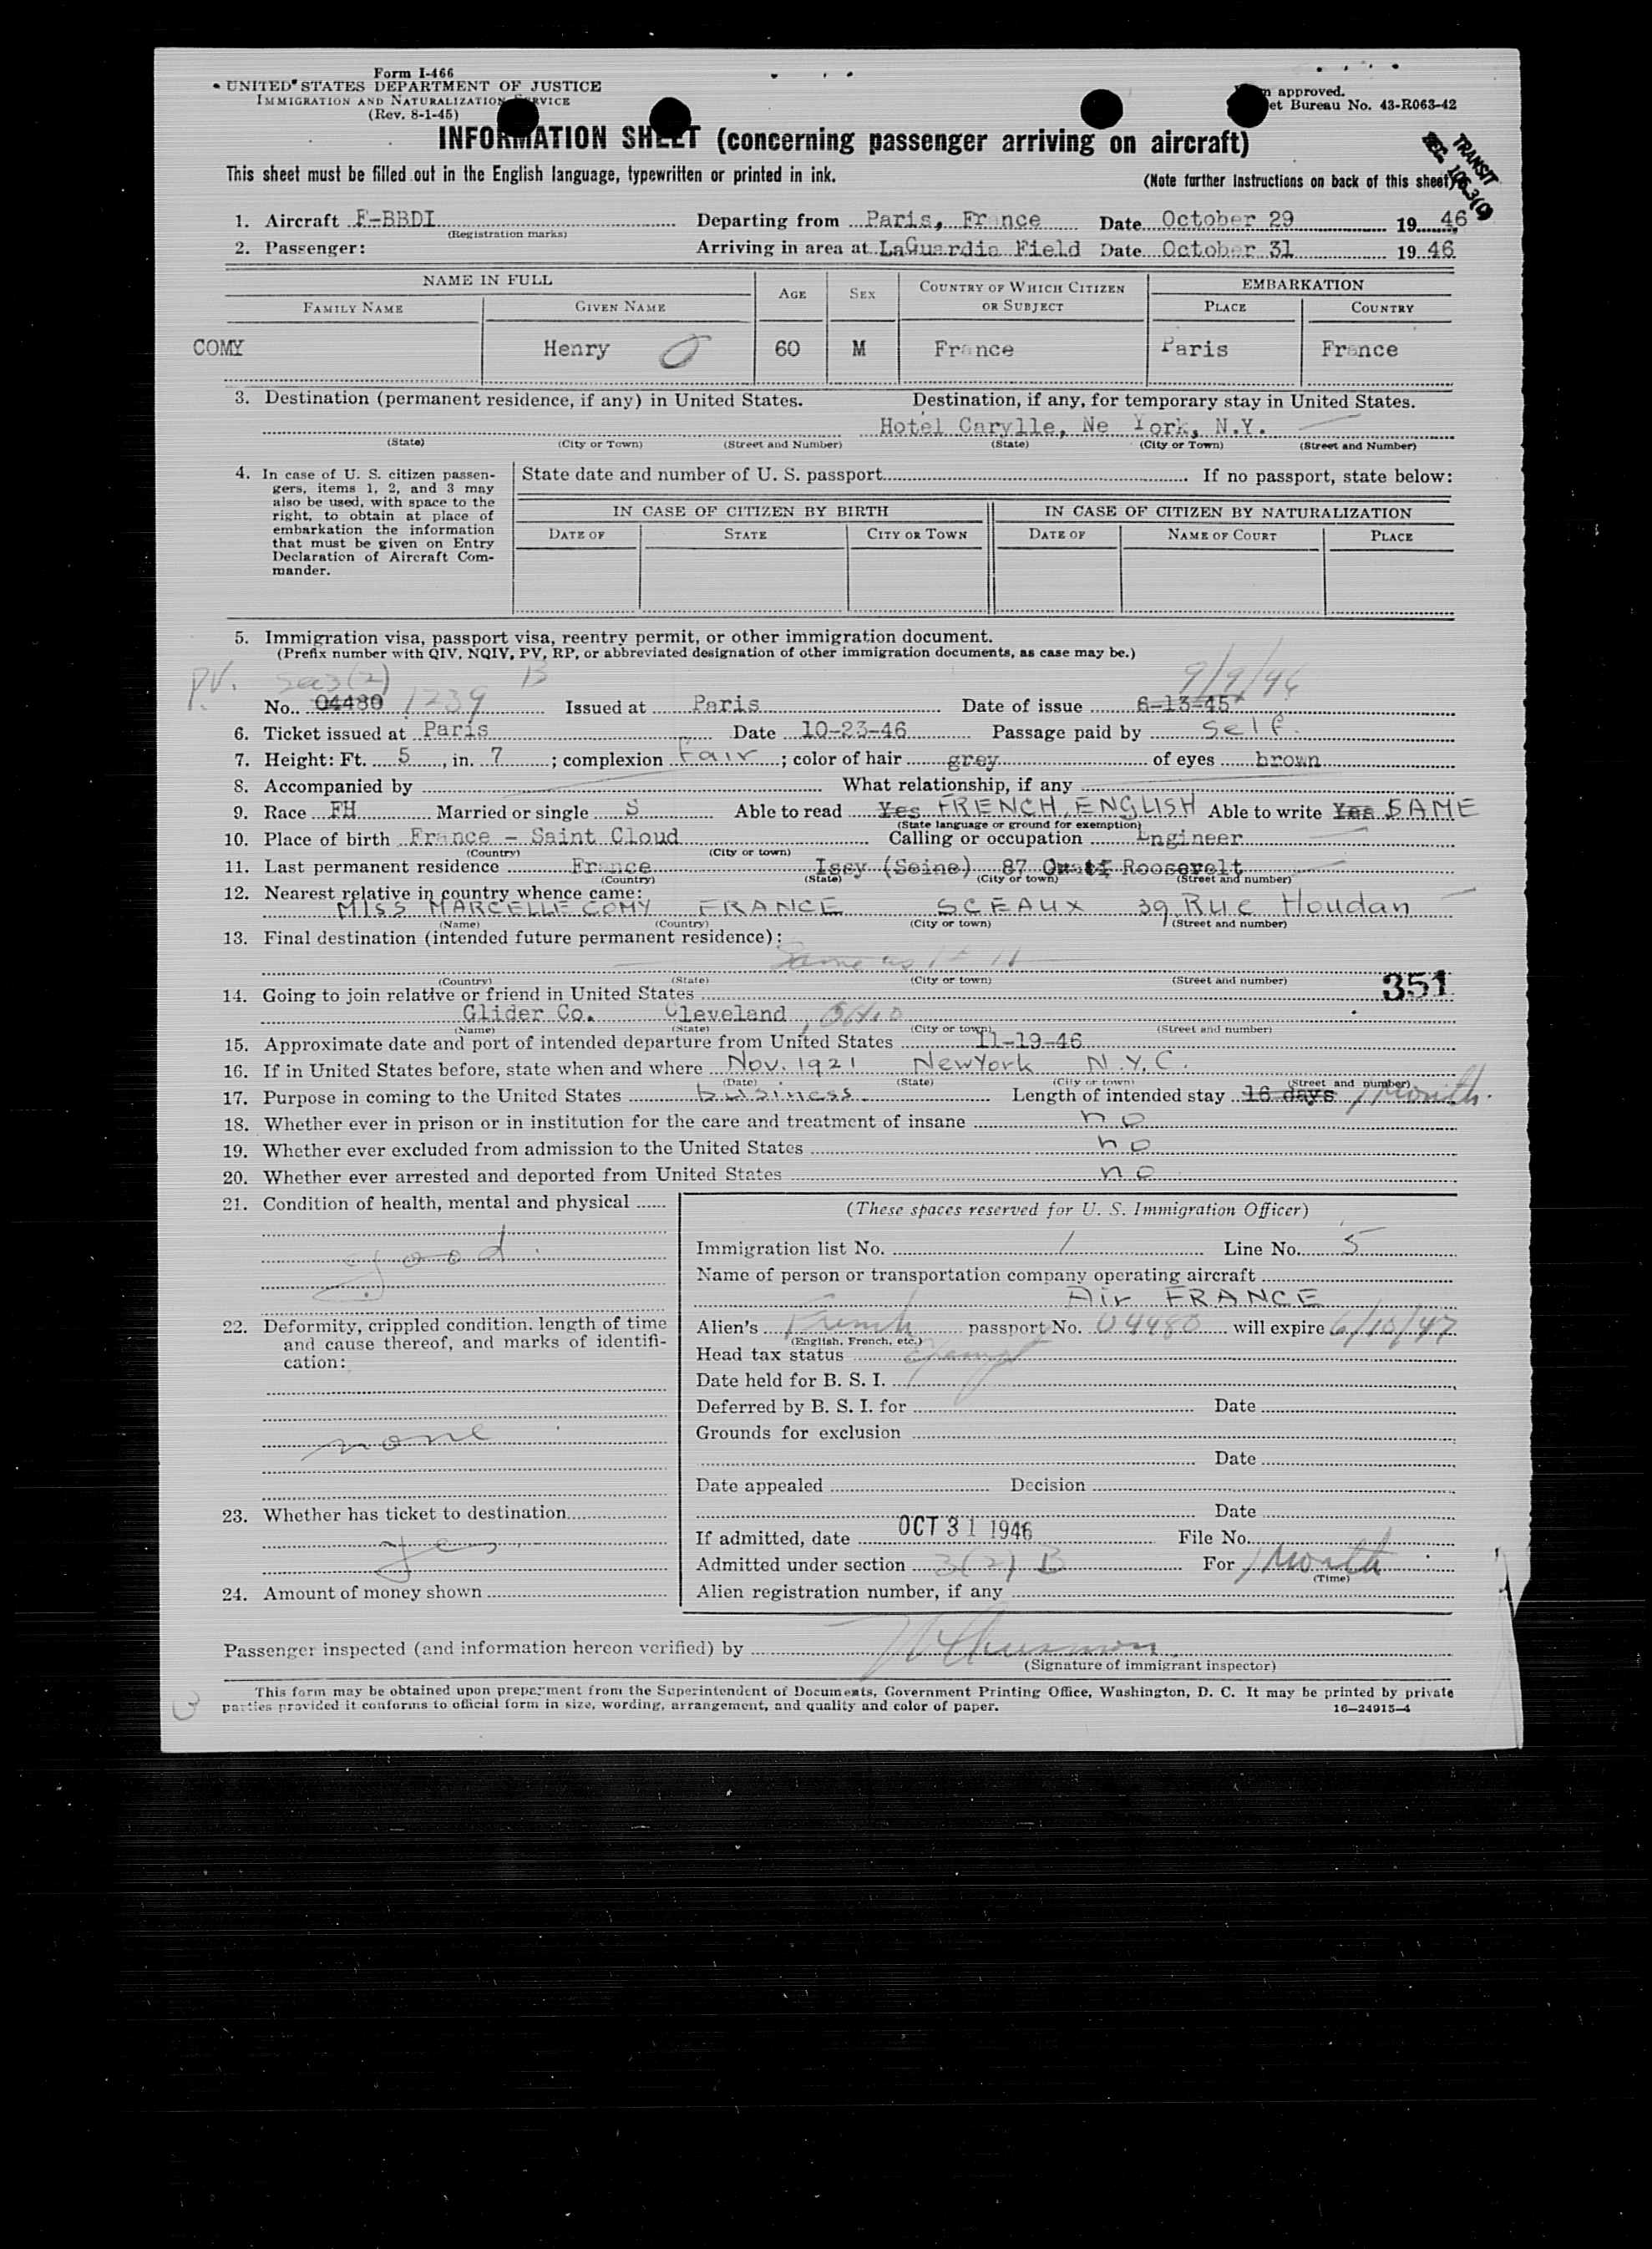 Form I-466
UNITED STATES DEPARTMENT OF JUSTICE
IMMIGRATION AND NATURALIZATION SERVICE
(Rev. 8-1-45)
approved.
et Bureau No. 43-R063-42
INFORMATION SHEET (concerning passenger arriving on aircraft)
TRANSIT
SEC.
This sheet must be filled out in the English language, typewritten or printed in ink.
(Note further instructions on back of this sheet)
1. Aircraft F-BBDI Departing from Paris, France Date October 29 1946
(Registration marks)
2. Passenger: Arriving in area at LaGuardia Field Date October 31 1946
NAME IN FULL AGE SEX COUNTRY OF WHICH CITIZEN OR SUBJECT EMBARKATION
FAMILY NAME GIVEN NAME PLACE COUNTRY
COMY Henry 60 M France Paris France
3. Destination (permanent residence, if any) in United States. Destination, if any, for temporary stay in United States.
Hotel Carylle, Ne York, N.Y.
(State) (City or Town) (Street and Number) (State) (City or Town) (Street and Number)
4. In case of U. S. citizen passengers, items 1, 2, and 3 may also be used, with space to the right, to obtain at place of embarkation the information that must be given on Entry Declaration of Aircraft Commander.
State date and number of U. S. passport If no passport, state below:
IN CASE OF CITIZEN BY BIRTH IN CASE OF CITIZEN BY NATURALIZATION
DATE OF STATE CITY OR TOWN DATE OF NAME OF COURT PLACE
5. Immigration visa, passport visa, reentry permit, or other immigration document.
(Prefix number with QIV, NQIV, PV, RP, or abbreviated designation of other immigration documents, as case may be.)
P.V. Sec 3(2) B 9/9/46
No. 04480 1239 Issued at Paris Date of issue 6-13-45
6. Ticket issued at Paris Date 10-23-46 Passage paid by Self.
7. Height: Ft. 5, in. 7; complexion Fair; color of hair grey of eyes brown
8. Accompanied by What relationship, if any
9. Race FH Married or single S Able to read Yes FRENCH, ENGLISH Able to write Yes SAME
(State language or ground for exemption)
10. Place of birth France - Saint Cloud Calling or occupation Engineer
(Country) (City or town)
11. Last permanent residence France Issy (Seine) 87 Quai Roosevelt
(Country) (State) (City or town) (Street and number)
12. Nearest relative in country whence came:
MISS MARCELLE COMY FRANCE SCEAUX 39 Rue Houdan
(Name) (Country) (City or town) (Street and number)
13. Final destination (intended future permanent residence):
Same as 11
(Country) (State) (City or town) (Street and number)
351
14. Going to join relative or friend in United States
Glider Co. Cleveland, Ohio
(Name) (State) (City or town) (Street and number)
15. Approximate date and port of intended departure from United States 11-19-46
16. If in United States before, state when and where Nov. 1921 New York N.Y.C.
(Date) (State) (City or town) (Street and number)
17. Purpose in coming to the United States business Length of intended stay 16 days 1 Month.
18. Whether ever in prison or in institution for the care and treatment of insane no
19. Whether ever excluded from admission to the United States no
20. Whether ever arrested and deported from United States no
21. Condition of health, mental and physical
good.
22. Deformity, crippled condition. length of time and cause thereof, and marks of identification:
none
23. Whether has ticket to destination
yes
24. Amount of money shown
(These spaces reserved for U. S. Immigration Officer)
Immigration list No. 1 Line No. 5
Name of person or transportation company operating aircraft
Air FRANCE
Alien's French passport No. 04480 will expire 6/10/47
(English, French, etc.)
Head tax status Exempt
Date held for B. S. I.
Deferred by B. S. I. for Date
Grounds for exclusion
Date
Date appealed Decision
Date
If admitted, date OCT 31 1946 File No.
Admitted under section 3(2) B For 1 Month
(Time)
Alien registration number, if any
Passenger inspected (and information hereon verified) by
(Signature of immigrant inspector)
This form may be obtained upon prepayment from the Superintendent of Documents, Government Printing Office, Washington, D. C. It may be printed by private
parties provided it conforms to official form in size, wording, arrangement, and quality and color of paper.
16—24915-4